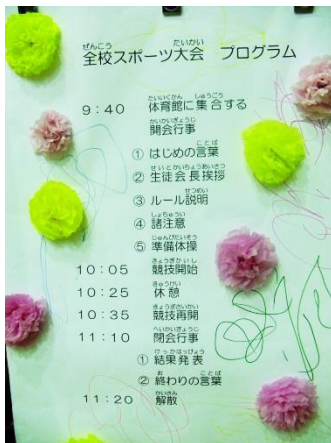 全校スポーツ大会 プログラム
9:40 体育館に集合する
開会行事
① はじめの言葉
② 生徒会長挨拶
③ ルール説明
④ 諸注意
⑤ 準備体操
10:05 競技開始
10:25 休憩
10:35 競技再開
11:10 閉会行事
① 結果発表
② 終わりの言葉
11:20 解散